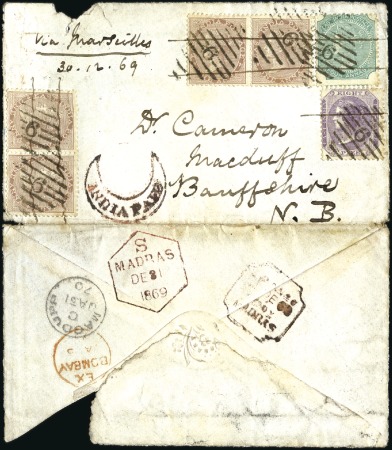 via Marseilles
30.12.69
EIGHT
Dr. Cameron
Macduff
Banffshire
N. B.
INDIA PAID
S
MADRAS
DE 31
1869
MACDUFF
JA 31
70
EX
BOMBAY